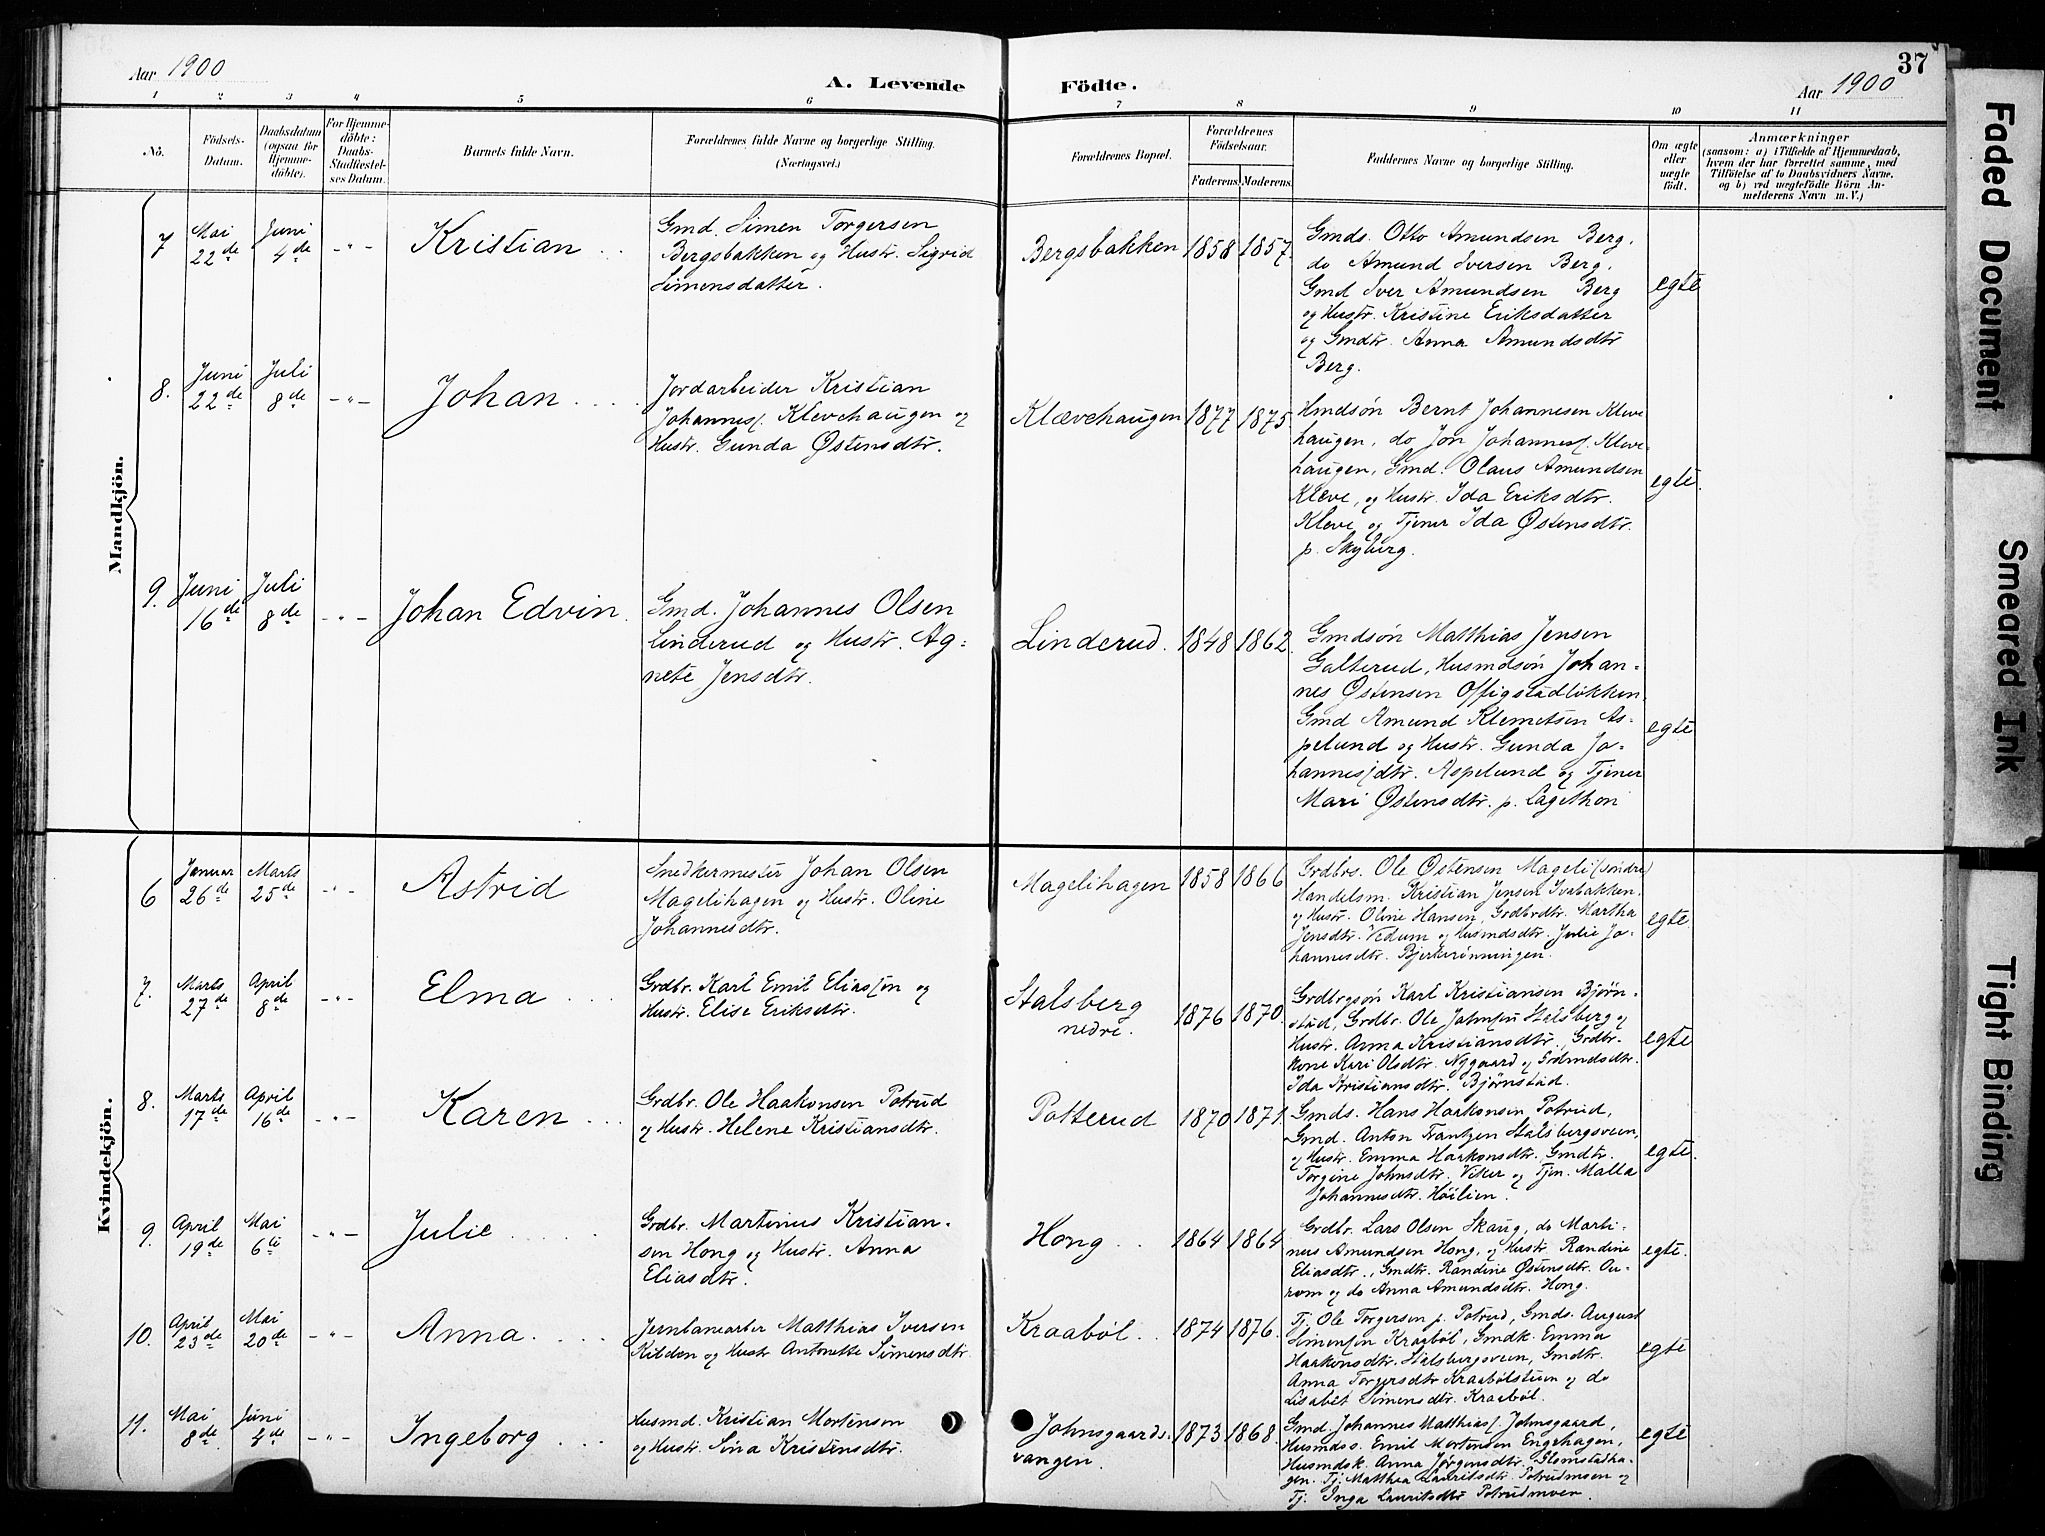 Aar 1900
A. Levende
Födte.
Aar 1900
37
1 2 3 4 5 6 7 8 9 10 11
No.
Födsels-
Datum.
Daabsdatum
(ogsaa for
Hjemme-
döbte).
For Hjemme-
döbte:
Daabs-
Stadfæstel-
ses Datum.
Barnets fulde Navn.
Forældrenes fulde Navne og borgerlige Stilling.
(Næringsvei.)
Forældrenes Bopæl.
Forældrenes
Födselsaar.
Faderens. Moderens.
Faddernes Navne og borgerlige Stilling.
Om ægte
eller
uægte
födt.
Anmærkninger
(saasom: a) i Tilfælde af Hjemmedaab,
hvem der har forrettet samme, med
Tilföielse af to Daabsvidners Navne.
og b) ved uægtefödte Börn An-
melderens Navn m. V.)
Mandkjön.
7
Mai
22de
Juni
4de
-"-
Kristian
Gmd. Simen Torgersen
Bergsbakken og Hustr. Sigrid
Simensdatter.
Bergsbakken
1858
1857.
Gmds. Otto Amundsen Berg,
do Amund Iversen Berg,
Gmd Iver Amundsen Berg
og Hustr. Kristine Eriksdatter
og Gmdtr. Anna Amundsdtr
Berg.
egte
8.
Juni
22de
Juli
8de
-"-
Johan
Jordarbeider Kristian
Johanness. Klevehaugen og
Hustr. Gunda Østensdtr.
Klævehaugen
1877
1875
Hmdsøn Bernt Johannesen Kleve
haugen, do Jon Johanness. Kleve-
haugen, Gmd. Olaus Amundsen
Kleve, og Hustr. Ida Eriksdtr.
Kleve og Tjener Ida Østensdtr.
p. Skyberg.
egte.
9.
Juni
16de
Juli
8de
-"-
Johan Edvin.
Gmd. Johannes Olsen
Linderud og Hustr. Ag-
nete Jensdtr.
Linderud.
1848
1862.
Gmdsøn Matthias Jensen
Galterud, Husmdsøn Johan-
nes Østensen Offigstadløkken,
Gmd Amund Klemetsen As-
pelund og Hustr. Gunda Jo-
hannesdtr. Aspelund og Tjener
Mari Østensdtr. p. Lagethon
egte
Kvindekjön.
6
Januar
26de
Marts
25de
-"-
Astrid
Snedkermester Johan Olsen
Magelihagen og Hustr. Oline
Johannesdtr.
Magelihagen
1858
1866
Grdbrs. Ole Østensen Mageli (søndre)
Handelsm. Kristian Jensen Ivabakken.
og Hustr. Oline Hansen, Grdbrdtr. Martha
Jensdtr. Vedum og Husmdsdtr. Julie Jo-
hannesdtr. Bjerkerønningen.
egte
7.
Marts
27de
April
8de
-"-
Elma
Grdbr. Karl Emil Eliassøn og
Hustr. Elise Eriksdtr.
Stalsberg
nedre.
1876
1870.
Grdbrgsøn Karl Kristiansen Bjørn-
stad, Grdbr. Ole Johnsen Stalsberg og
Hustr. Anna Kristiansdtr., Grdbr.
Kone Kari Olsdtr. Nygaard og Grdmdsdtr.
Ida Kristiansdtr. Bjørnstad.
egte
8.
Marts
17de
April
16de
-"-
Karen
Grdbr. Ole Haakonsen Potrud
og Hustr. Helene Kristiansdtr.
Potterud
1870
1871.
Gmds. Hans Haakonsen Potrud,
Gmd. Anton Frantzen Stalsbergsveen,
og Hustr. Emma Haakonsdtr. Gmdtr.
Torgine Johnsdtr. Viker og Tjen. Malla
Johannesdtr. Høilien.
egte.
9.
April
19de
Mai
6te
-"-
Julie
Grdbr. Martinus Kristian-
sen Hong og Hustr. Anna
Eliasdtr.
Hong
1864
1864
Grdbr. Lars Olsen Skaug, do Marti-
nus Amundsen Hong, og Hustr. Randine
Eliasdtr., Gmdtr. Randine Østensdtr. Au-
rom og do Anna Amundsdtr. Hong.
egte.
10.
April
23de
Mai
20de
-"-
Anna
Jernbanearber Matthias Iversen
Kilden og Hustr Antonette Simensdtr.
Kraabøl
1874
1876.
Tj. Ole Torgersen p. Potrud, Gmds. August
Simensen Kraabøl, Gmdk. Emma
Haakonsdtr. Stalsbergsveen, Gmdtr.
Anna Torgersdtr Kraabølstuen og do
Lisabet Simensdtr. Kraabøl.
egte
11.
Mai
8de
Juni
4de
-"-
Ingeborg
Husmd. Kristian Mortensen
og Hustr. Sina Kristensdtr.
Johnsgaards-
vangen.
1873
1868.
Gmd. Johannes Matthiass. Johnsgaard,
Husmdss. Emil Mortensen Engehagen,
Husmdsk. Anna Jørgensdtr. Glomstadha-
gen. Tj. Matthea Lauritsdtr. Potrudmoen og
Tj. Inga Lauritsdtr Potrudmoen.
egte
Faded Document
Smeared Ink
Tight Binding